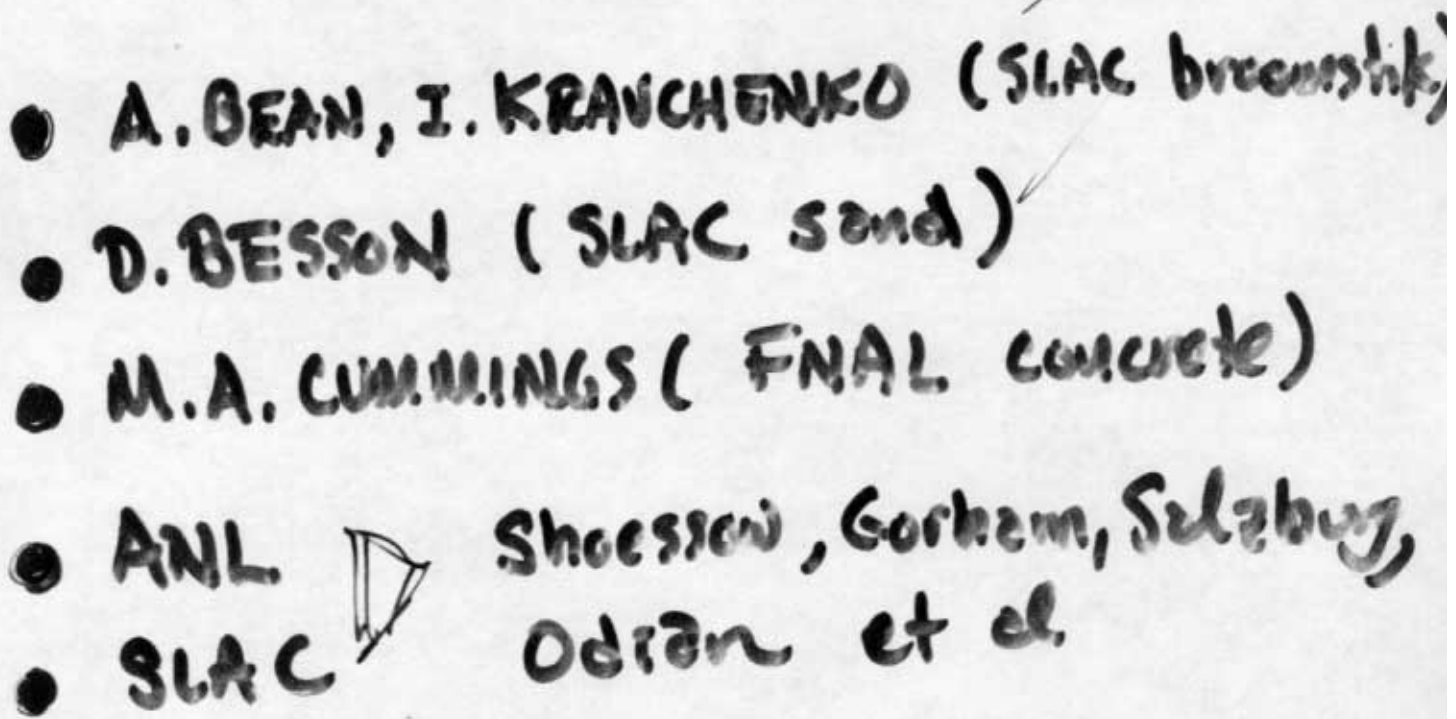 • A. BEAN, I. KRAVCHENKO (SLAC broomstik)
• D. BESSON (SLAC sand)
• M.A. CUMMINGS (FNAL concrete)
• ANL Shoessow, Gorham, Salzburg,
• SLAC Odian et al